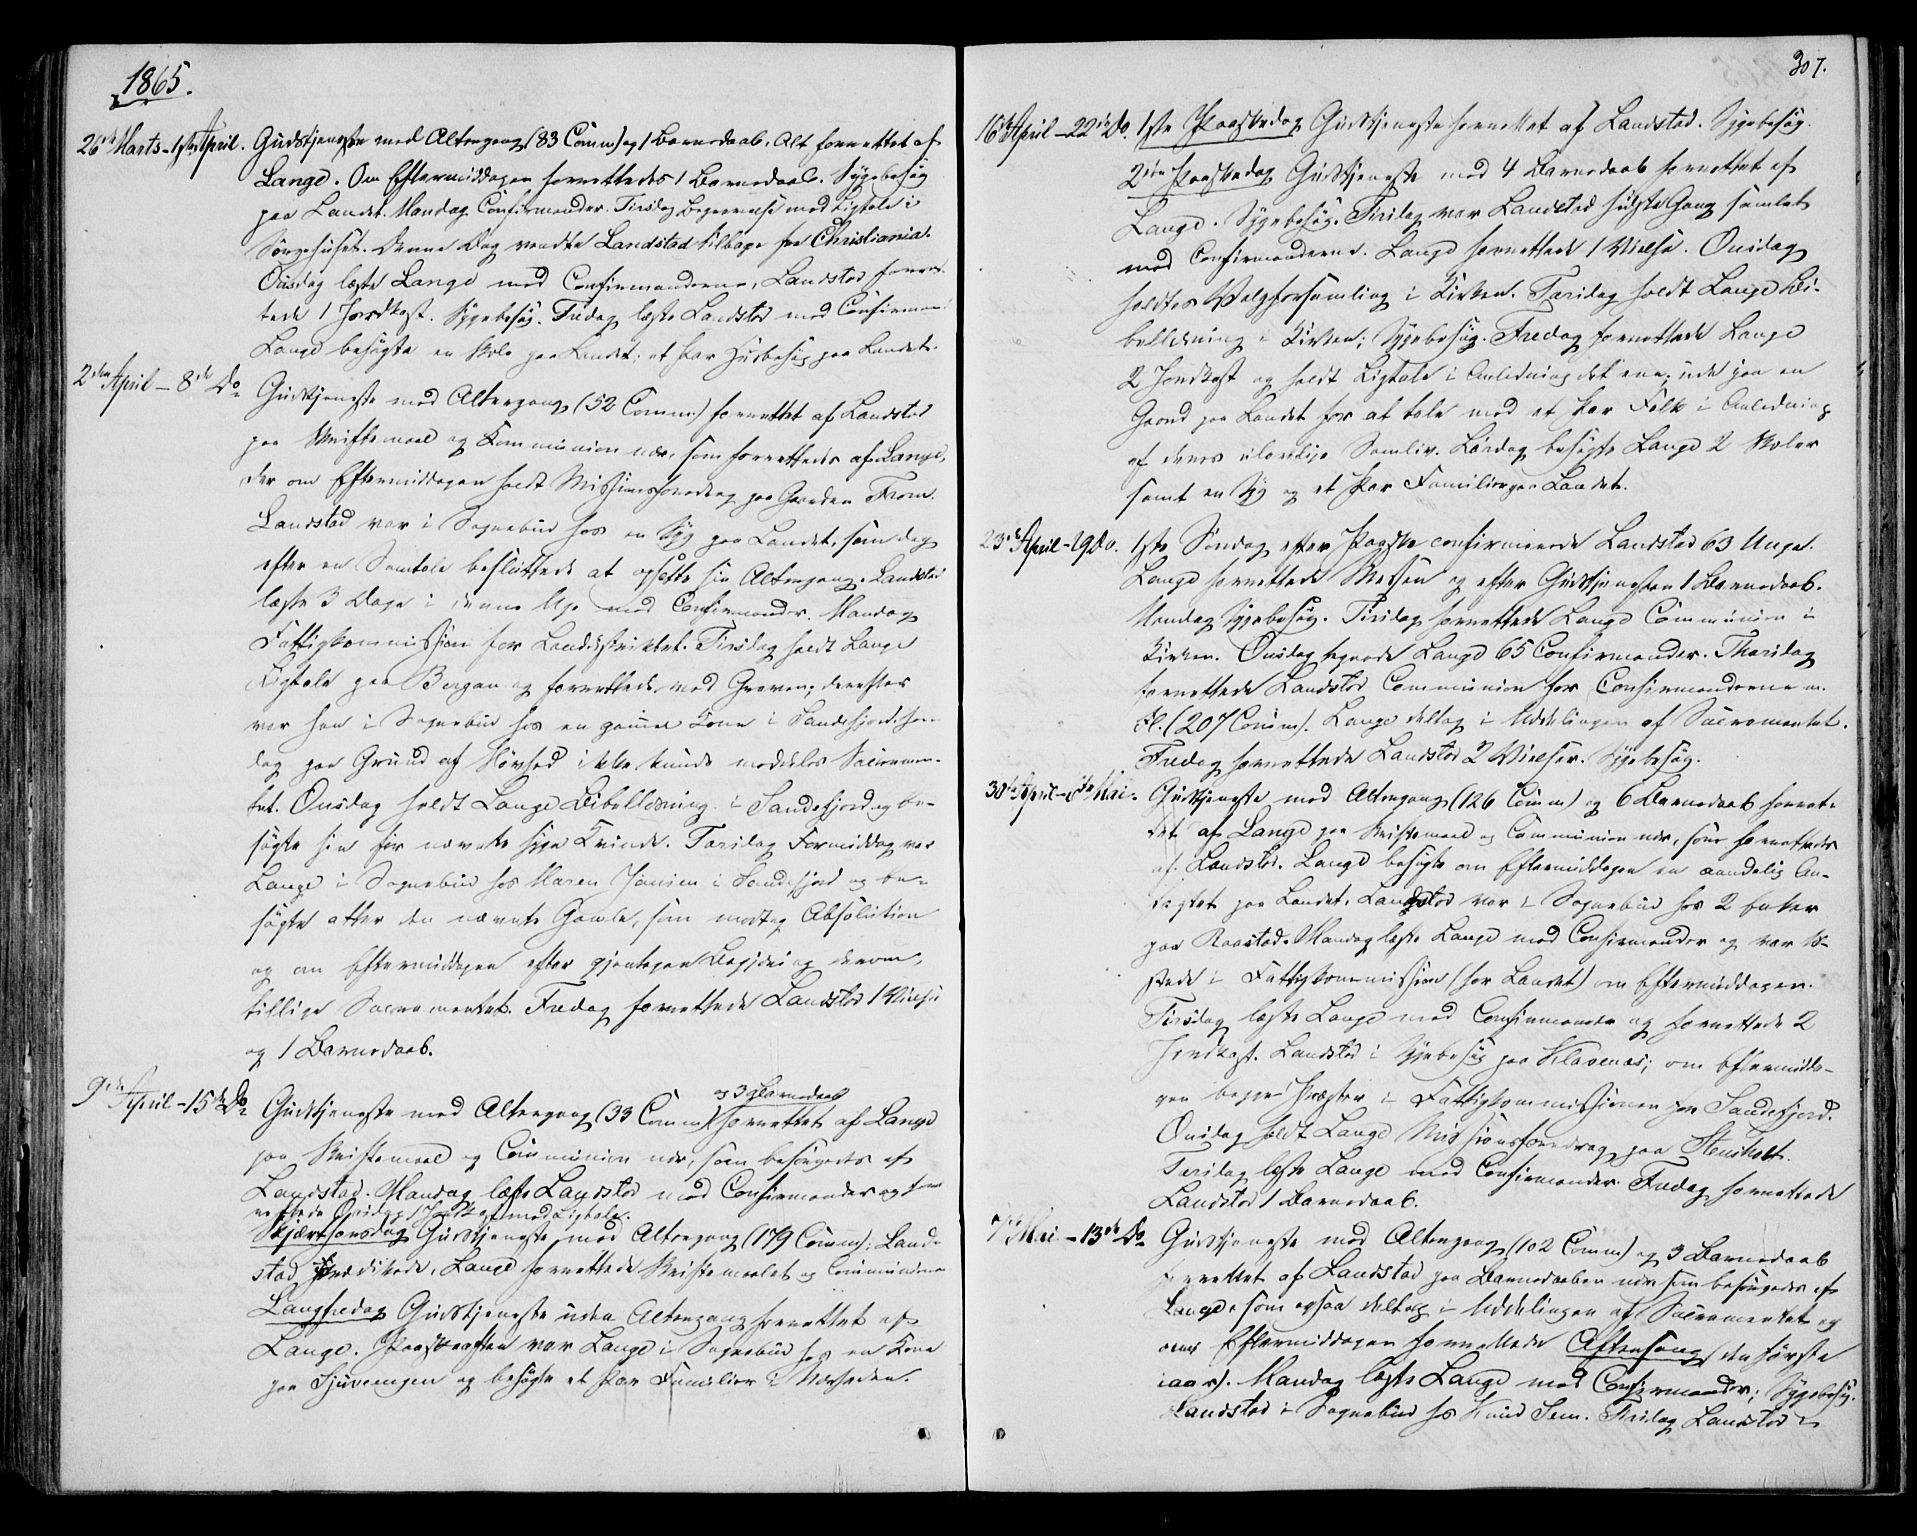 1865.
26de Marts-1ste April. Gudstjeneste med Altergang (83 Comm) og 1 Barnedaab. Alt forrettet af
Lange. Om Eftermiddagen forrettedes 1 Barnedaab. Sygebesøg
paa Landet. Mandag Confirmander. Tirsdag Begravelse med Ligtale i
Sørgehuset. Denne Dag vendte Landstad tilbage fra Christiania.
Onsdag læste Lange med Confirmanderne, Landstad forret-
tede 1 Jordkast. Sygebesøg. Fredag læste Landstad med Confirman
Lange besøgte en Skole paa Landet; et Par Husbesøg paa Landet.
2den April - 8de Do Gudstjeneste med Altergang (52 Comm) forrettet af Landstad
paa Skriftemaal og Kommunion nær, som forrettedes af Lange,
der om Eftermiddagen holdt Missionsforedrag paa Gaarden From.
Landstad var i Sognebud hos en Syg paa Landet, som dog
efter en Samtale besluttede at opsætte sin Altergang. Landstad
læste 3 Dage i denne Uge med Confirmander. Mandag
Fattigkommission for Landdistriktet. Tirsdag holdt Lange
Ligtale paa Bergan og forrettede ved Graven; derefter
var han i Sognebud hos en gammel Kone i Sandefjord, hvem
dog paa Grund af Døvhed ikke kunde meddeles Sacramen-
tet. Onsdag holdt Lange Bibellæsning i Sandefjord og be-
søgte sin før nævnte syge Kvinde. Torsdag Formiddag var
Lange i Sognebud hos Maren Jansen i Sandefjord og be-
søgte atter den nævnte Gamle, som modtog Absolution
og om Eftermiddagen efter gjentagen Begjæring derom,
tillige Sacramentet. Fredag forrettede Landstad 1 Vielse
og 1 Barnedaab.
9de April - 15de Do Gudstjeneste med Altergang (33 Comm) og 3 Barnedaab forrettet af Lange
paa Skriftemaal og Communion nær, som besørgedes af
Landstad. Mandag læste Landstad med Confirmander og for
rettede Onsdag 1 Jordkast med Ligtale.
Skjærthorsdag Gudstjeneste med Altergang (179 Comm); Land-
stad prædikede, Lange forrettede Skriftemaalet og Communionen
Langfredag Gudstjeneste uden Altergang forrettet af
Lange. Paaskeaften var Lange i Sognebud hos en Kone
paa Hjuvengen og besøgte et Par Familier i Nærheden.
307.
16de April - 22de Do. 1ste Paaskedag Gudstjeneste forrettet af Landstad. Sygebesøg.
2den Paaskedag Gudstjeneste med 4 Barnedaab forrettet af
Lange. Sygebesøg. Tirsdag var Landstad sidste Gang samlet
med Confirmanderne. Lange forrettede 1 Vielse. Onsdag
holdtes Valgforsamling i Kirken. Torsdag holdt Lange Bi-
bellæsning i Kirken; Sygebesøg. Fredag forrettede Lange
2 Jordkast og holdt Ligtale i Anledning det ene; ude paa en
Gaard paa Landet for at tale med et Par Folk i Anledning
af deres ulovlige Samliv. Lørdag besøgte Lange 2 Skoler
samt en Syg og et Par Familier paa Landet.
23de April - 29 Do. 1ste Søndag efter Paaske confirmerede Landstad 63 Unge.
Lange forrettede Messen og efter Gudstjenesten 1 Barnedaab.
Mandag Sygebesøg. Tirsdag forrettede Lange Communion i
Kirken. Onsdag tegnede Lange 65 Confirmander. Thorsdag
forrettede Landstad Communion for Confirmanderne m.
Fl. (207 Comm). Lange deltog i Uddelingen af Sacramentet.
Fredag forrettede Landstad 2 Vielser. Sygebesøg.
30te April - 6te Mai. Gudstjeneste med Altergang (126 Comm) og 6 Barnedaab forret-
tet af Lange paa Skriftemaal og Communion nær, som forrettedes
af Landstad. Lange besøgte om Eftermiddagen en aandelig An-
fegtet paa Landet. Landstad var i Sognebud hos 2
paa Raastad. Mandag læste Lange med Confirmander og var til
stede i Fattigkommission (for Landet) om Eftermiddagen.
Tirsdag læste Lange med Confirmander og forrettede 2
Jordkast. Landstad i Sygebesøg paa Klavenæs; om Eftermidda-
gen begge Præster i Fattigkommissionen for Sandefjord.
Onsdag holdt Lange Missionsforedrag paa Stensholt.
Torsdag læste Lange med Confirmander. Fredag forrettede
Landstad 1 Barnedaab.
7de Mai - 13de Do Gudstjeneste med Altergang (102 Comm) og 3 Barnedaab
forrettet af Landstad paa Barnedaaben nær som besørgedes af
Lange, som ogsaa deltog i Uddelingen af Sacramentet og
om Eftermiddagen forrettede Aftensang (den første
iaar). Mandag læste Lange med Confirmander; Sygebesøg.
Landstad i Sognebud hos Knud Sem. Tirsdag Landstad i